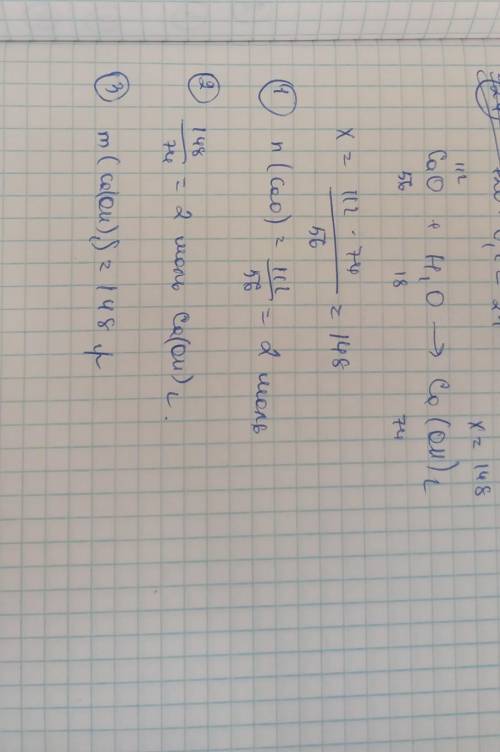 x = 148
112
CaO + H₂O → Ca(OH)₂
56 18 74
x = 112 · 74 / 56 = 148
① n(CaO) = 112/56 = 2 моль
② 148/74 = 2 моль Ca(OH)₂.
③ m(Ca(OH)₂) = 148 г